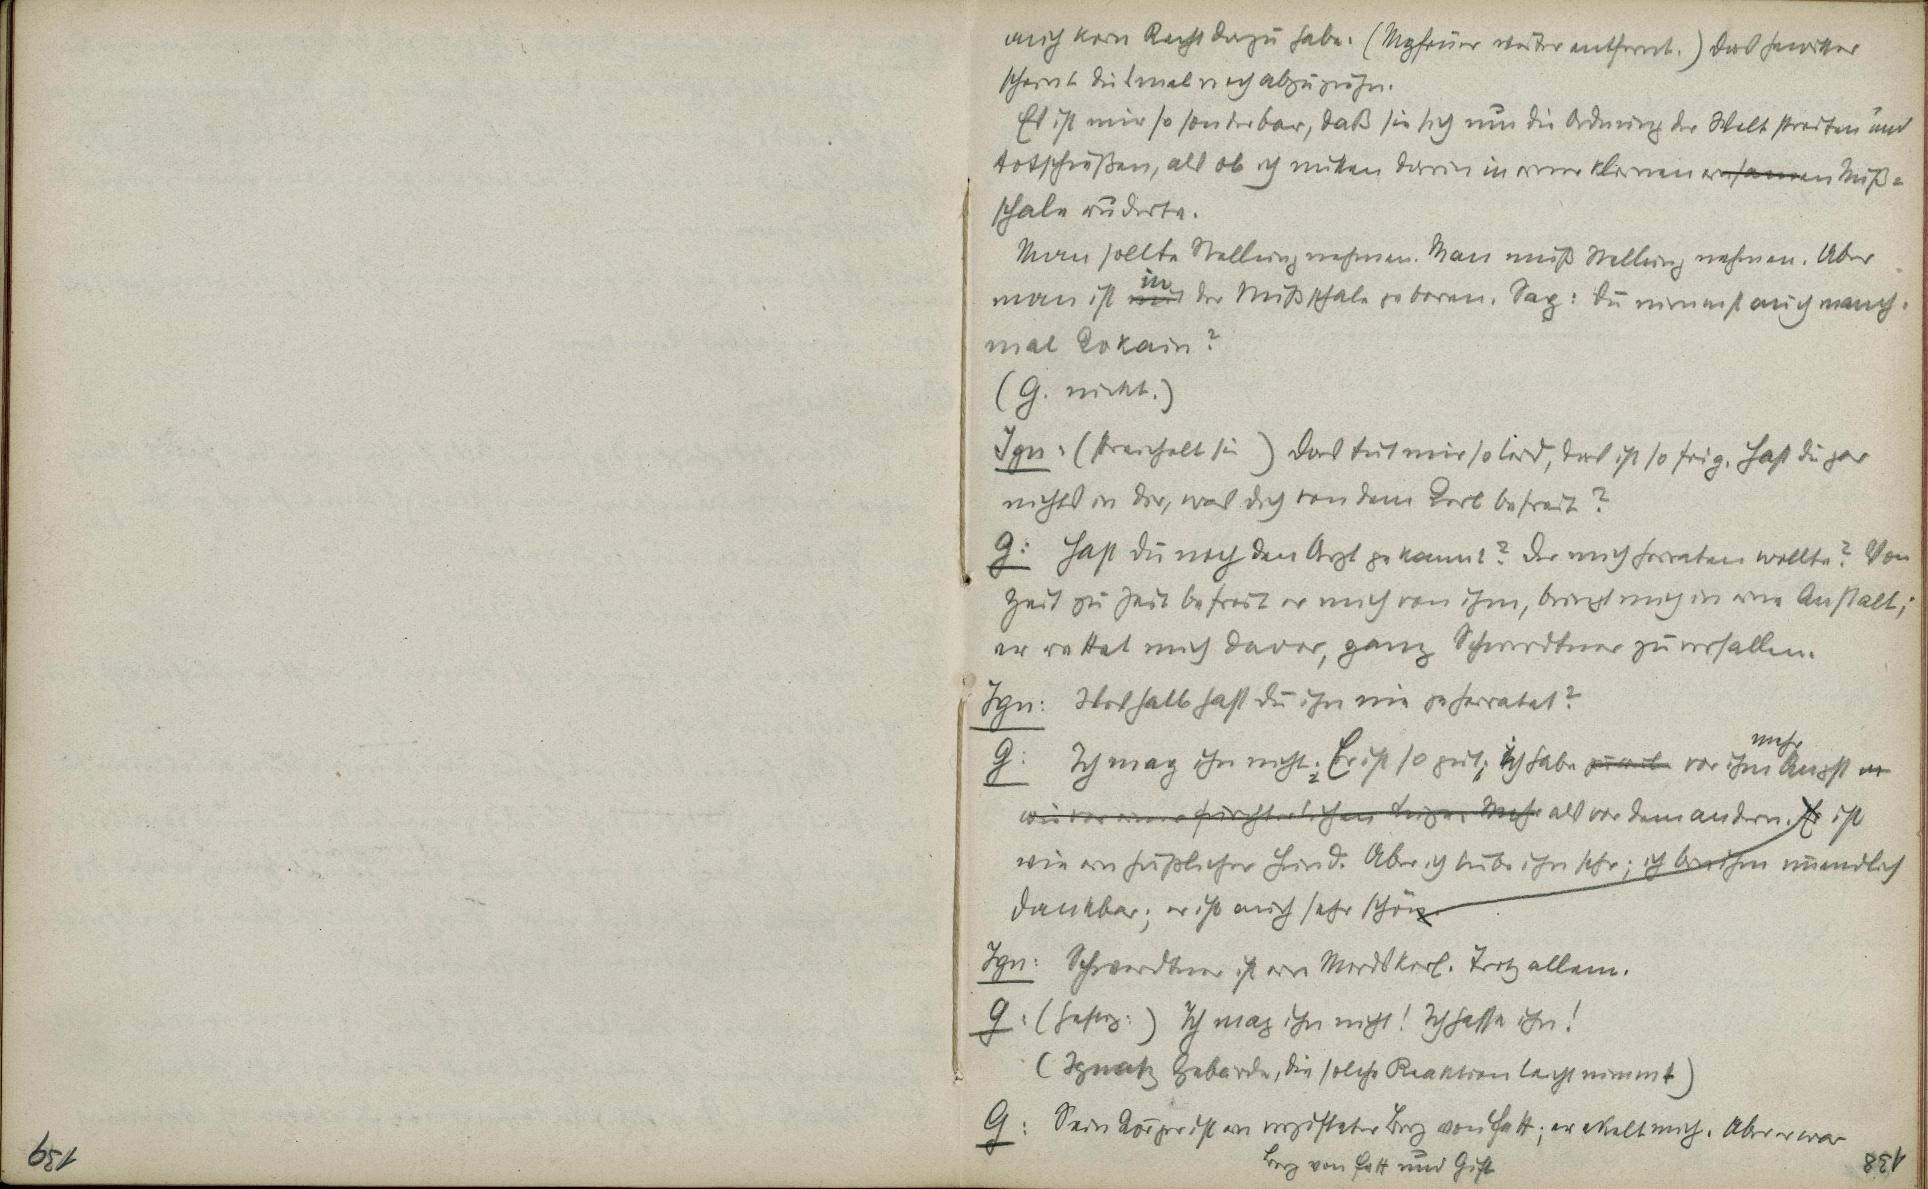 auch kein Recht dazu habe. (Mgfeuer weiter entfernt.) Das Gewitter
scheint diesmal noch abzuziehn.
Es ist mir so sonderbar, daß sie sich um die Ordnung der Welt streiten und
totschießen, als ob ich mitten darin in einer kleinen einsamen Nuß=
schale ruderte.
Man sollte Stellung nehmen. Man muß Stellung nehmen. Aber
man ist mit in der Nußschale geboren. Sag: Du nimmst auch manch-
mal Cokain?
(G. nickt.)
Ign: (streichelt sie) Das tut mir so leid, das ist so feig. Hast du gar
nichts in dir, was dich von dem Kerl befreit?
G: Hast du noch den Arzt gekannt? Der mich heiraten wollte? Von
Zeit zu Zeit befreit er mich von ihm, bringt mich in eine Anstalt;
er rettet mich davor, ganz Schwerdtner zu verfallen.
Ign: Weshalb hast du ihn nie geheiratet?
G: Ich mag ihn nicht. Er ist so gut; ich habe vor ihm mehr Angst
wie vor einer fürchterlichen Mehr als vor dem andern. Er ist
wie ein häßlicher Hund. Aber ich liebe ihn sehr; ich bin ihm unendlich
dankbar; er ist auch sehr schön.
Ign: Schwerdtner ist ein Mordskerl. Trotz allem.
G: (heftig:) Ich mag ihn nicht! Ich hasse ihn!
(Ignatz Gebärde, die solche Reaktion leicht nimmt)
G: Sein Körper ist ein vergifteter Berg von Fett; er ekelt mich. Aber er war
Berg von Fett und Gift
138
139